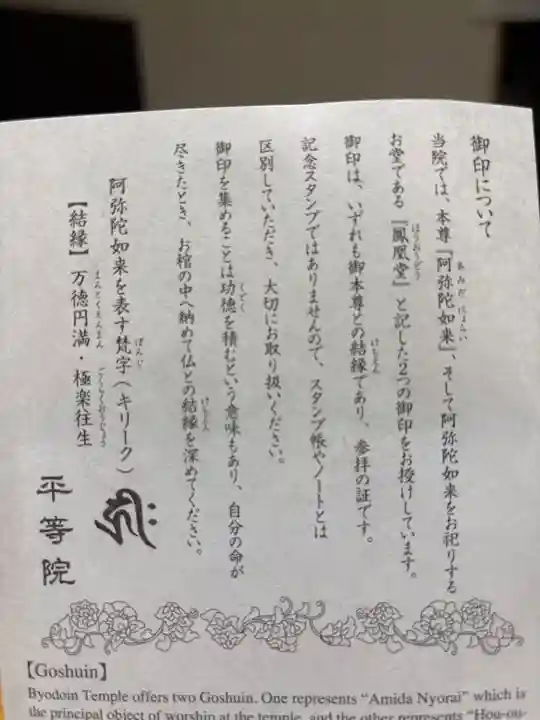 御印について
当院では、本尊『阿弥陀如来』、そして阿弥陀如来をお祀りする
お堂である『鳳凰堂』と記した2つの御印をお授けしています。
御印は、いずれも御本尊との結縁であり、参拝の証です。
記念スタンプではありませんので、スタンプ帳やノートとは
区別していただき、大切にお取り扱いください。
御印を集めることは功徳を積むという意味もあり、自分の命が
尽きたとき、お棺の中へ納めて仏との結縁を深めてください。
阿弥陀如来を表す梵字(キリーク)
【結縁】 万徳円満・極楽往生
平等院
【Goshuin】
Byodoin Temple offers two Goshuin. One represents “Amida Nyorai” which is
the principal object of worship at the temple, and the other represents “Hou-ou-